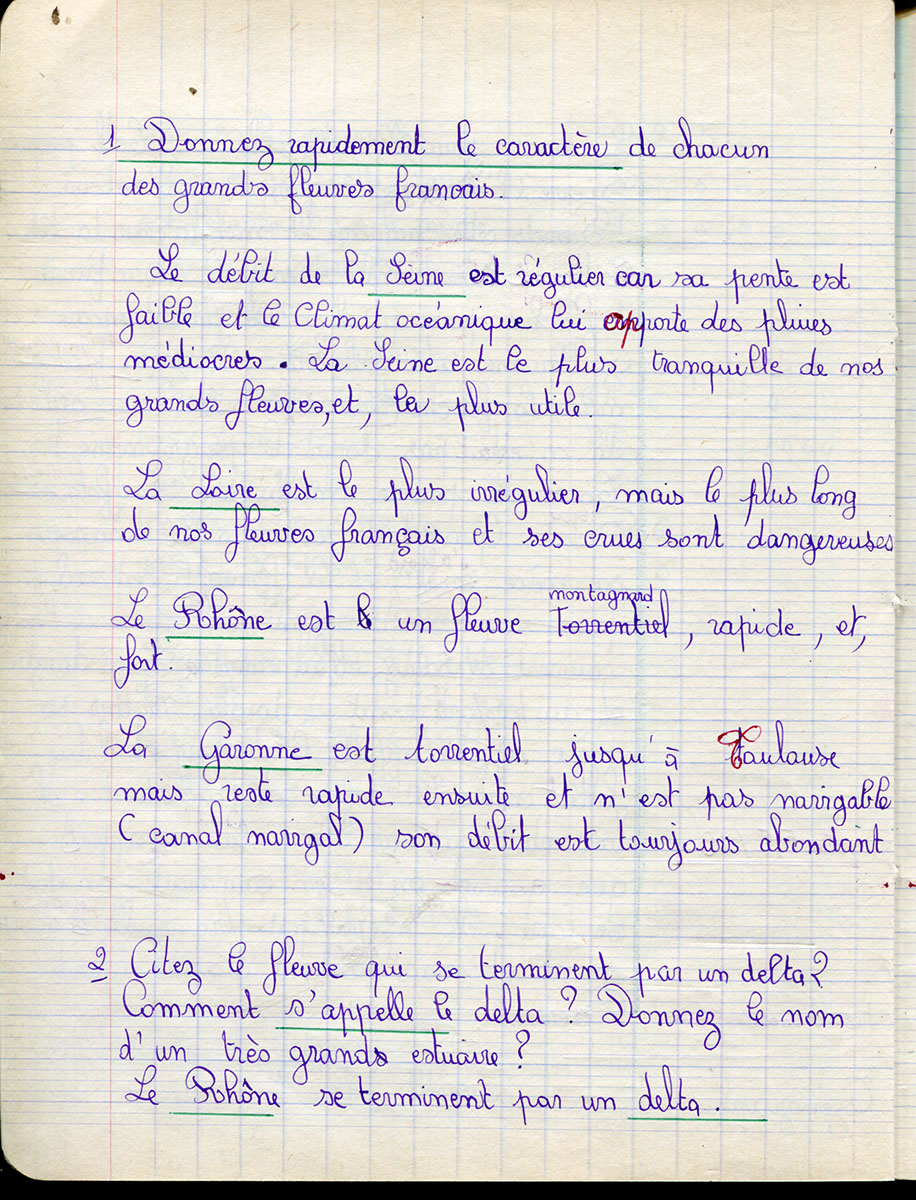 1 Donnez rapidement le caractère de chacun
des grands fleuves francais.
Le débit de la Seine est régulier car sa pente est
faible et le Climat océanique lui apporte des pluies
médiocres. La Seine est le plus tranquille de nos
grands fleuves, et, le plus utile.
La Loire est le plus irrégulier, mais le plus long
de nos fleuves français et ses crues sont dangereuses
Le Rhône est un fleuve Torrentiel montagnard, rapide, et,
fort.
La Garonne est torrentiel jusqu'à Toulouse
mais reste rapide ensuite et n'est pas navigable
(canal navigal) son débit est toujours abondant
2 Citez le fleuve qui se terminent par un delta?
Comment s'appelle le delta? Donnez le nom
d'un très grands estuaire?
Le Rhône se terminent par un delta.